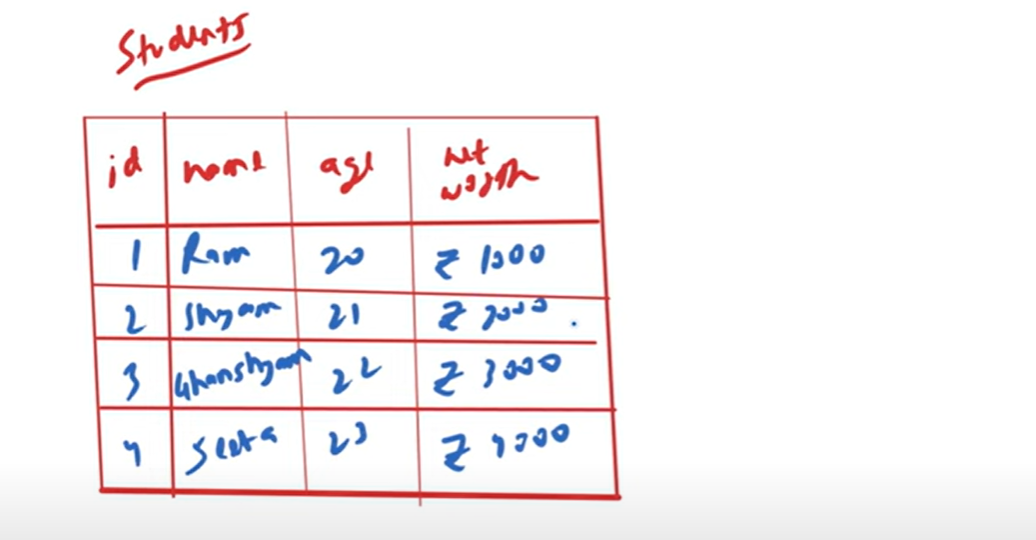 Students
id name age net worth
1 Ram 20 ₹ 1000
2 Shyam 21 ₹ 2000
3 Ghanshyam 22 ₹ 3000
4 Seeta 23 ₹ 4000